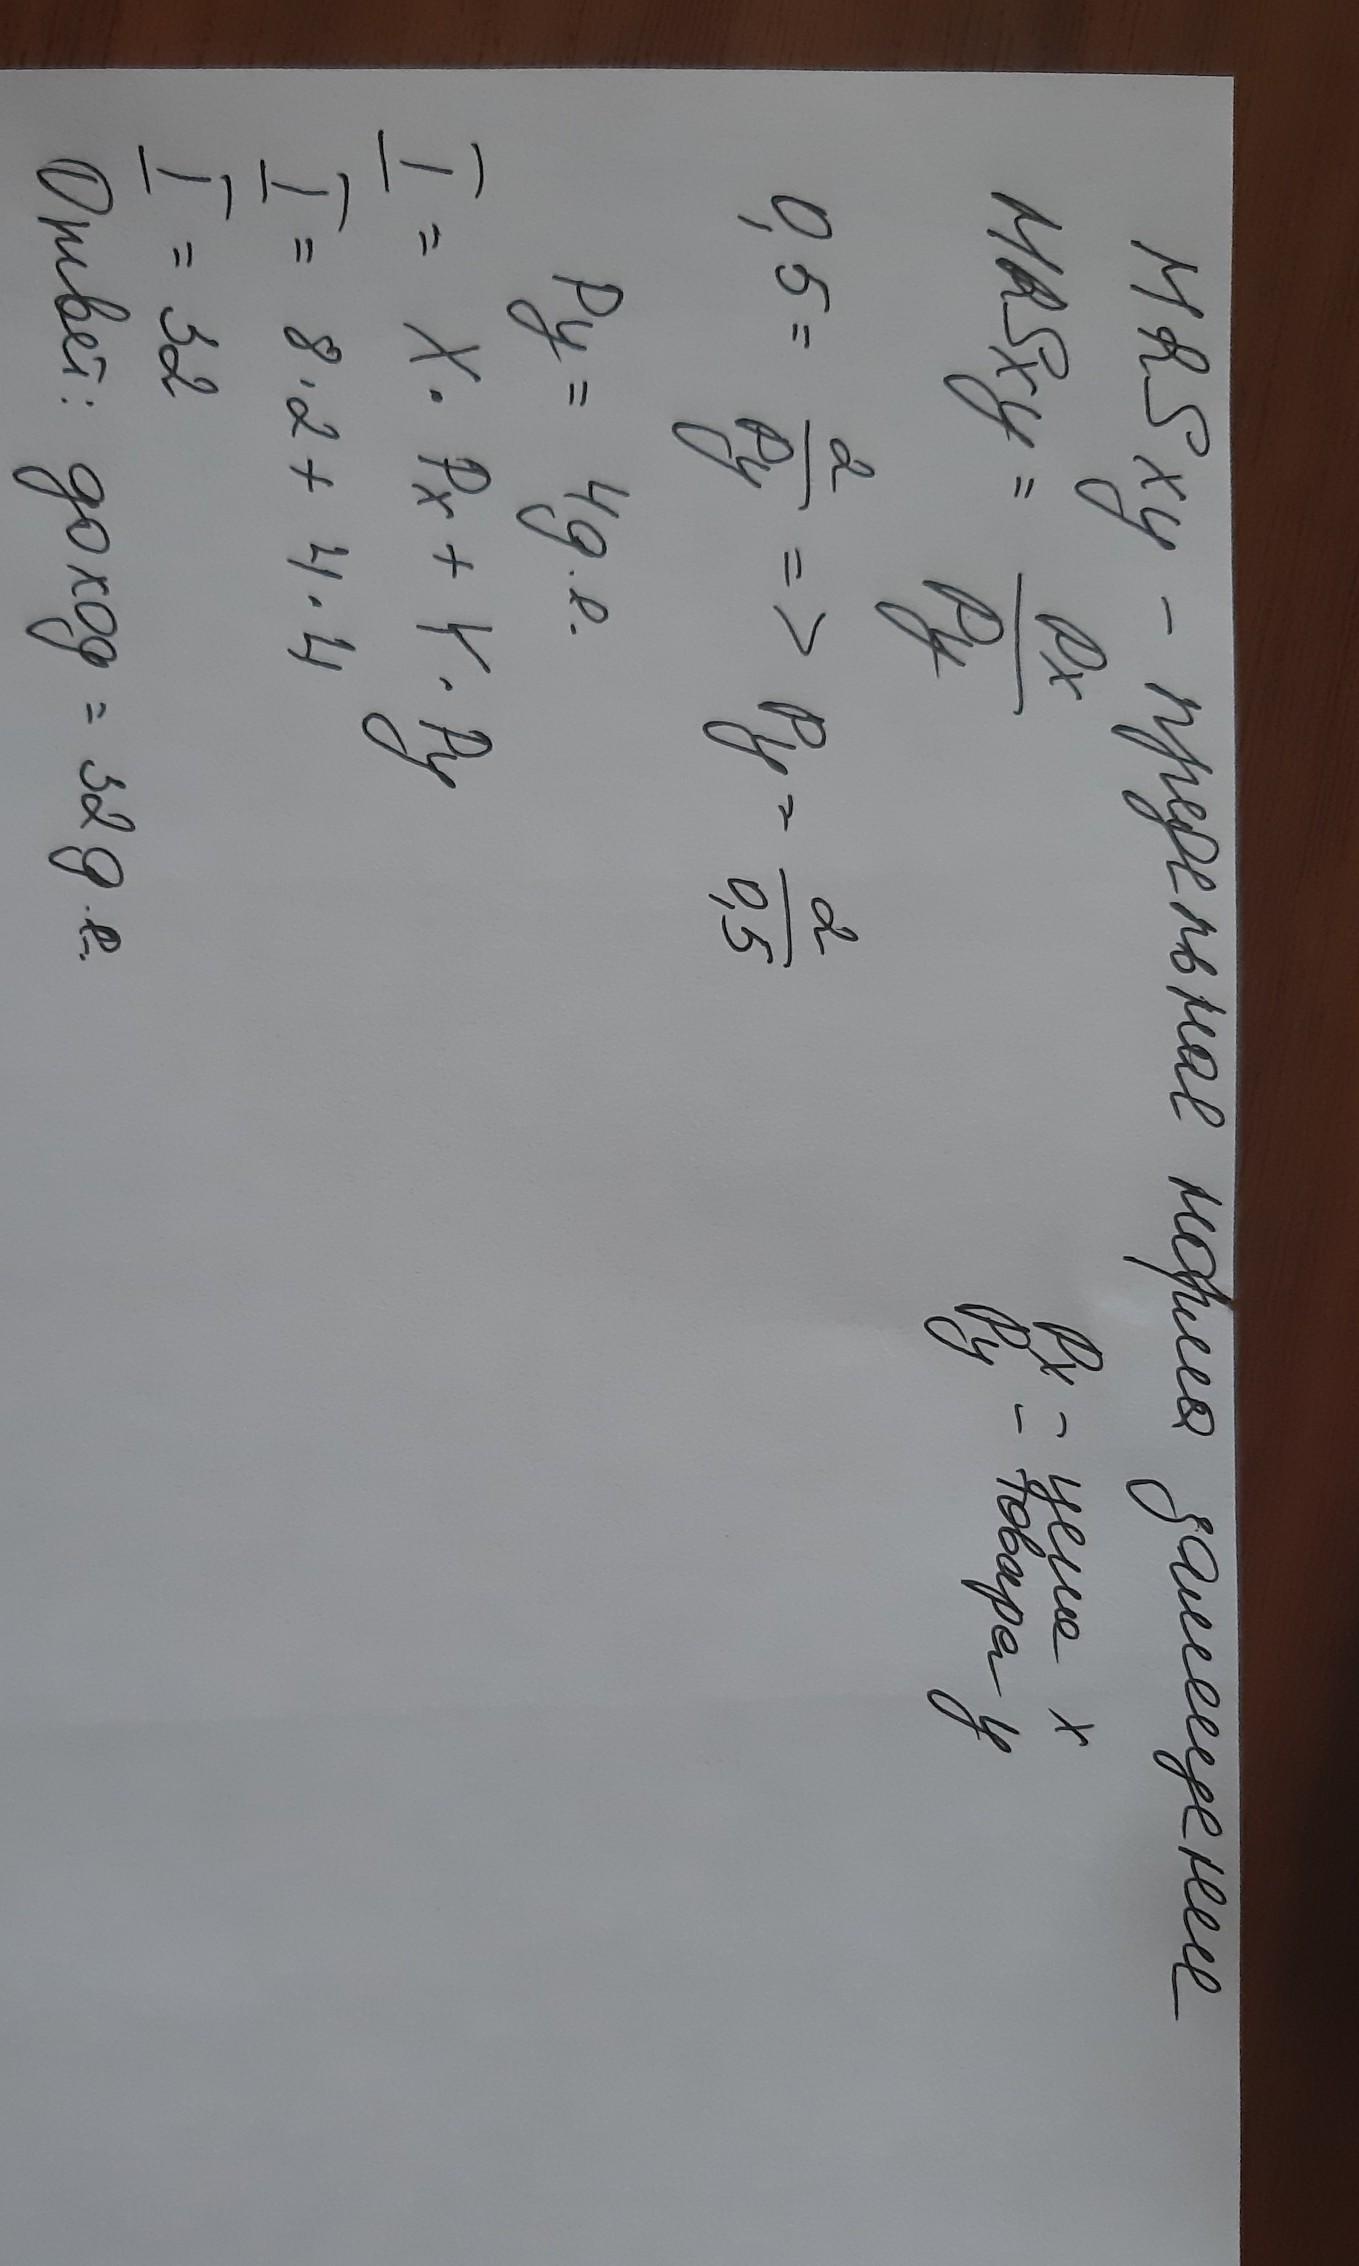 MRSxy - предельная норма замещения
MRSxy = Px / Py
Px - цена x
Py - товара y
0,5 = 2 / Py => Py = 2 / 0,5
Py = 4 д.е.
I = X · Px + Y · Py
I = 8 · 2 + 4 · 4
I = 32
Ответ: доход = 32 д.е.